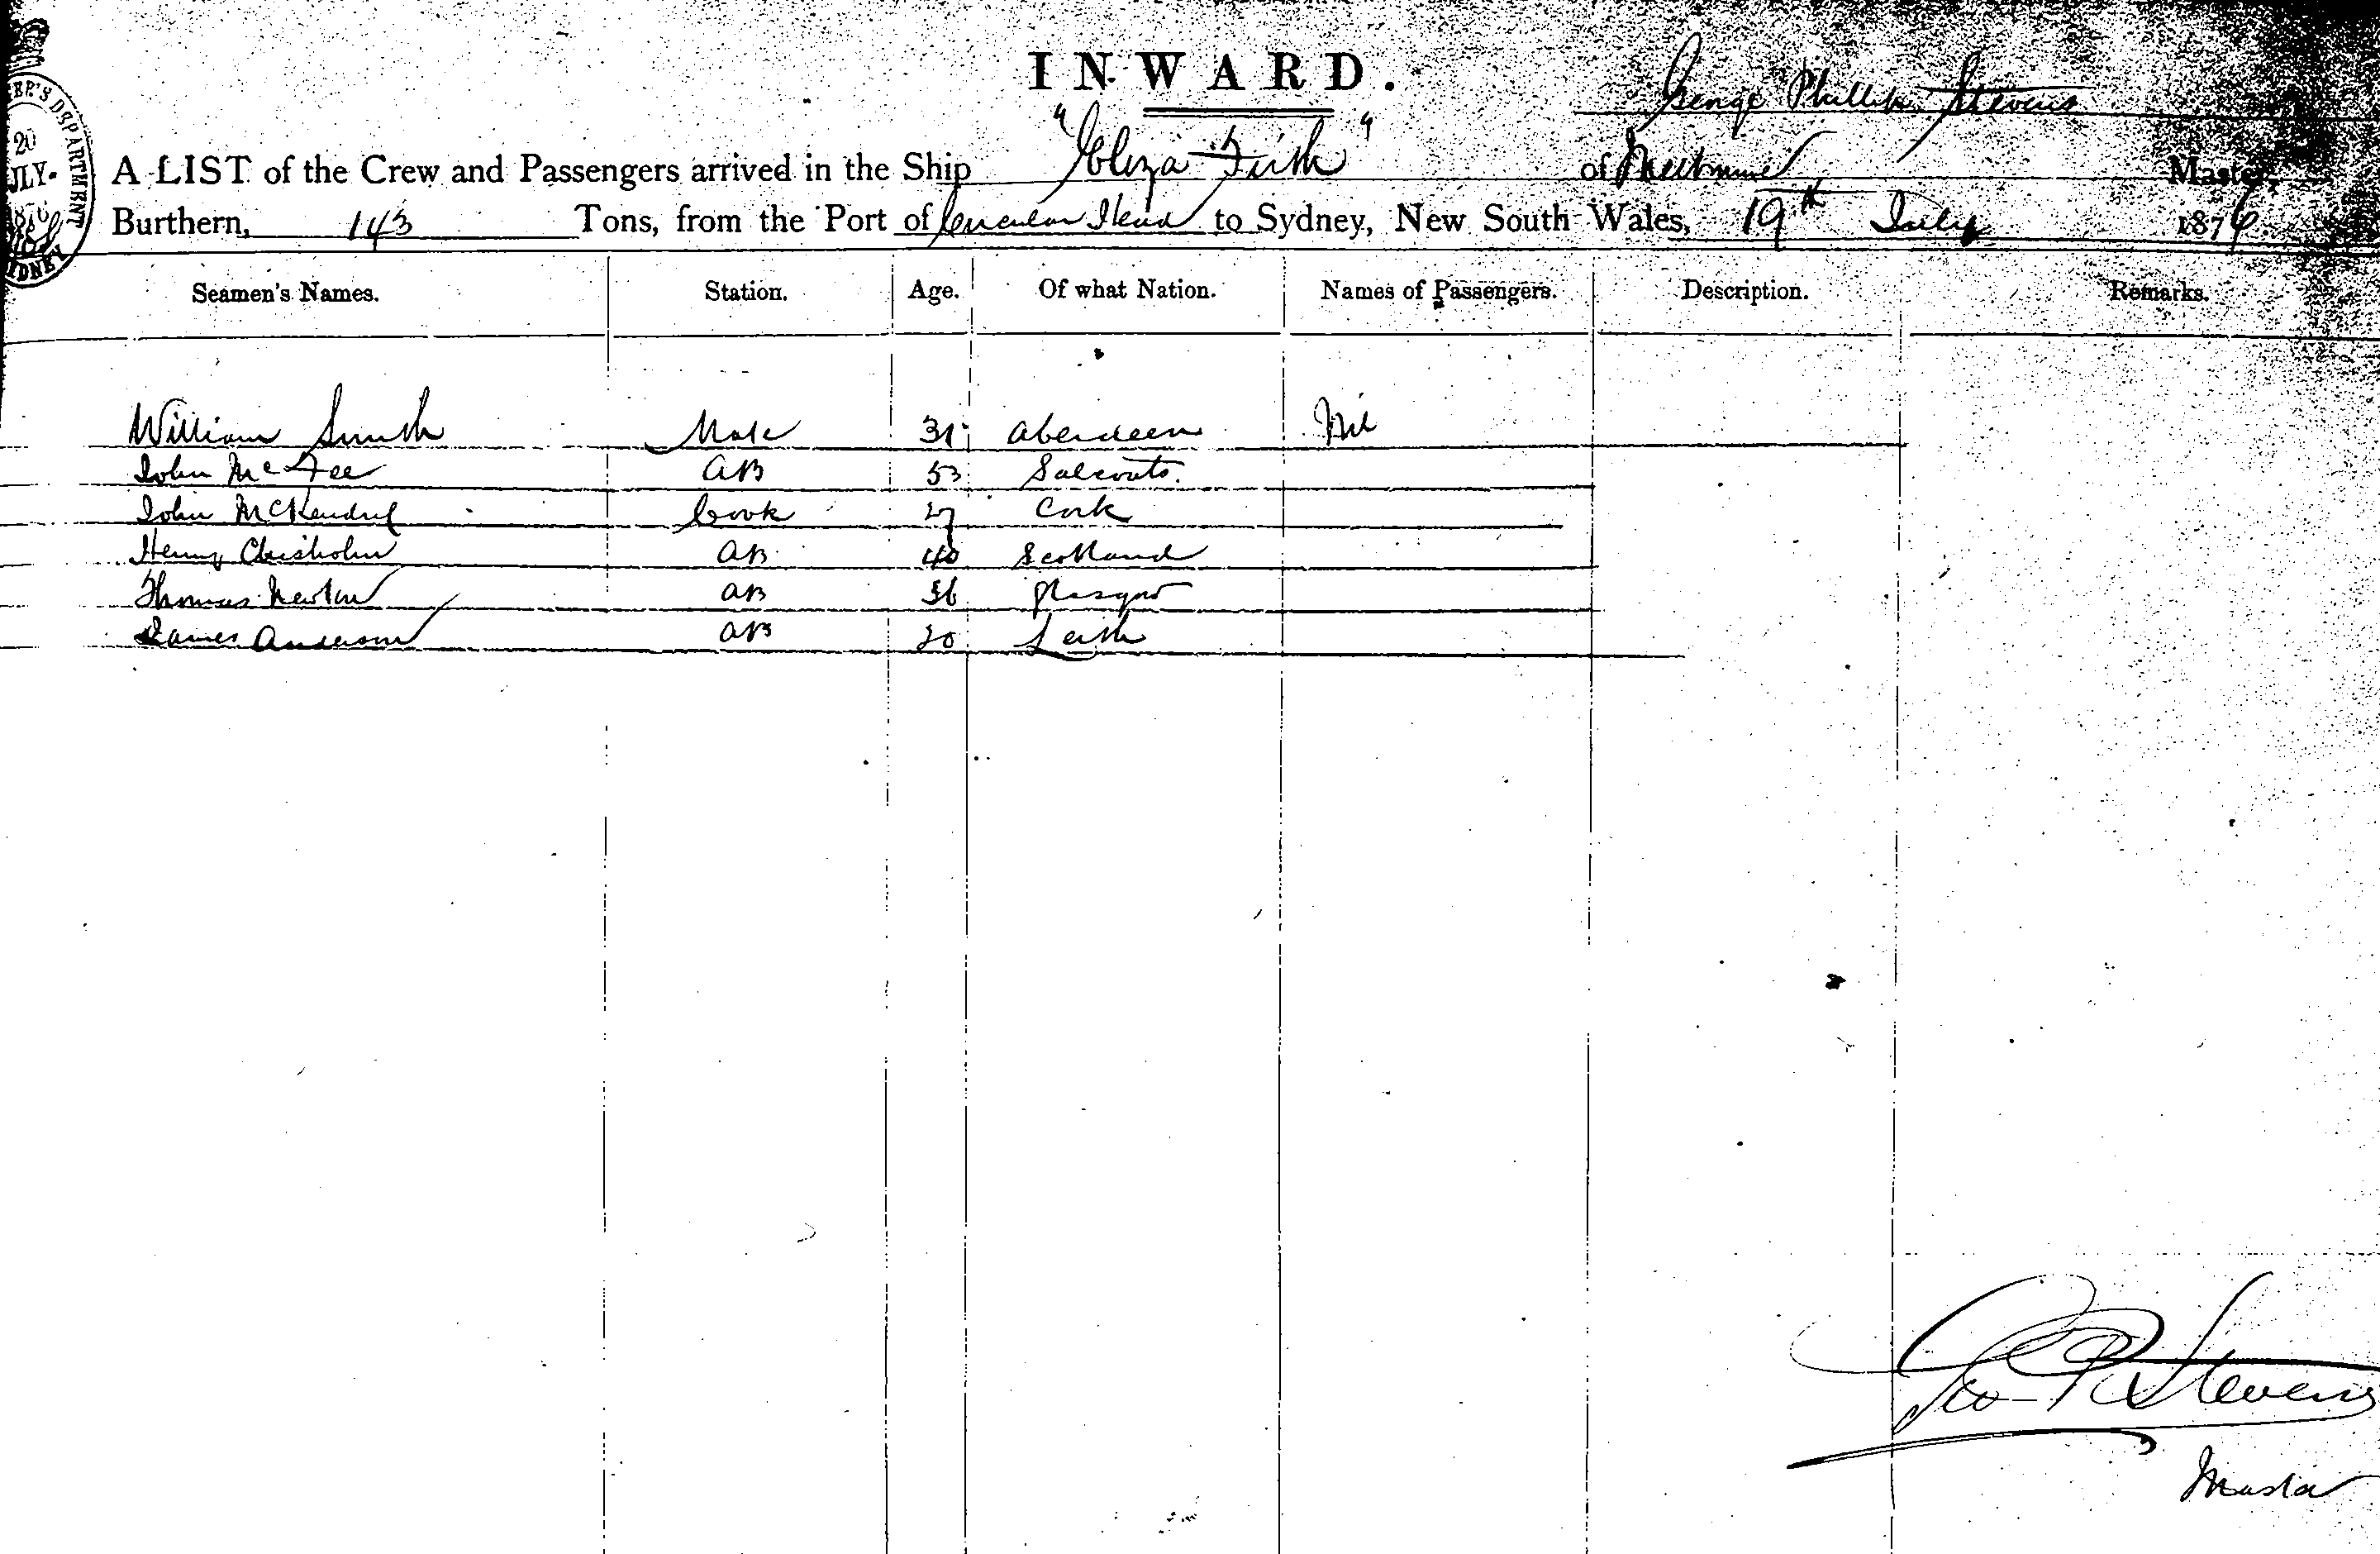 INWARD.
George Phillip Stevens
A LIST of the Crew and Passengers arrived in the Ship "Eliza Firth" of Melbourne Master,
Burthern, 143 Tons, from the Port of Circular Head to Sydney, New South Wales, 19th July 1876.
Seamen's Names. Station. Age. Of what Nation. Names of Passengers. Description. Remarks.
William Smith Mate 31 Aberdeen Nil
John McFee AB 53 Salcoats.
John McKendril Cook 27 Cork
Henry Chisholm AB 40 Scotland
Thomas Newton AB 36 Glasgow
James Anderson AB 20 Leith
Geo P Stevens
Master
20
JULY
1876
DEPARTMENT
SYDNEY